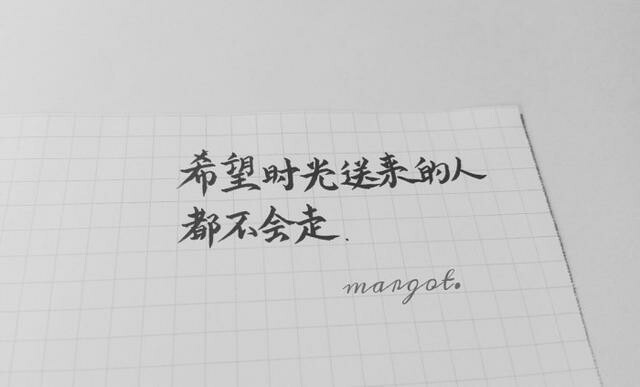 希望时光送来的人
都不会走.
margot.